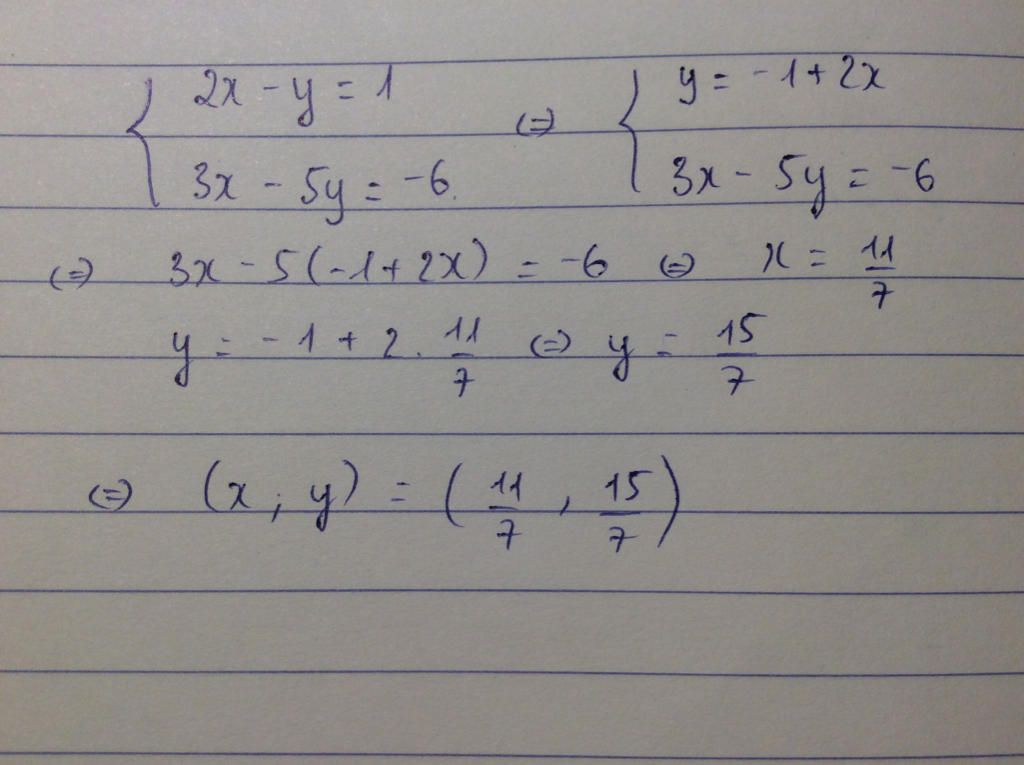 2x - y = 1 (=) y = -1 + 2x
3x - 5y = -6. 3x - 5y = -6
(=) 3x - 5(-1 + 2x) = -6 (=) x = 11/7
y = -1 + 2 . 11/7 (=) y = 15/7
(=) (x ; y) = (11/7 , 15/7)